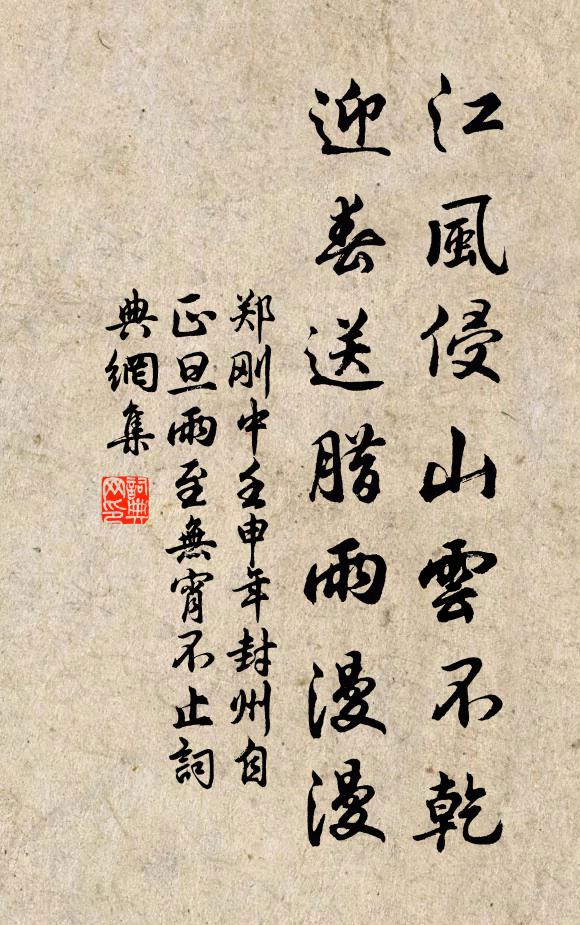 江風侵山雲不乾
迎春送腊雨漫漫
郑刚中壬申年封州自
正旦雨至無宵不止詞
典網集
詞典网印